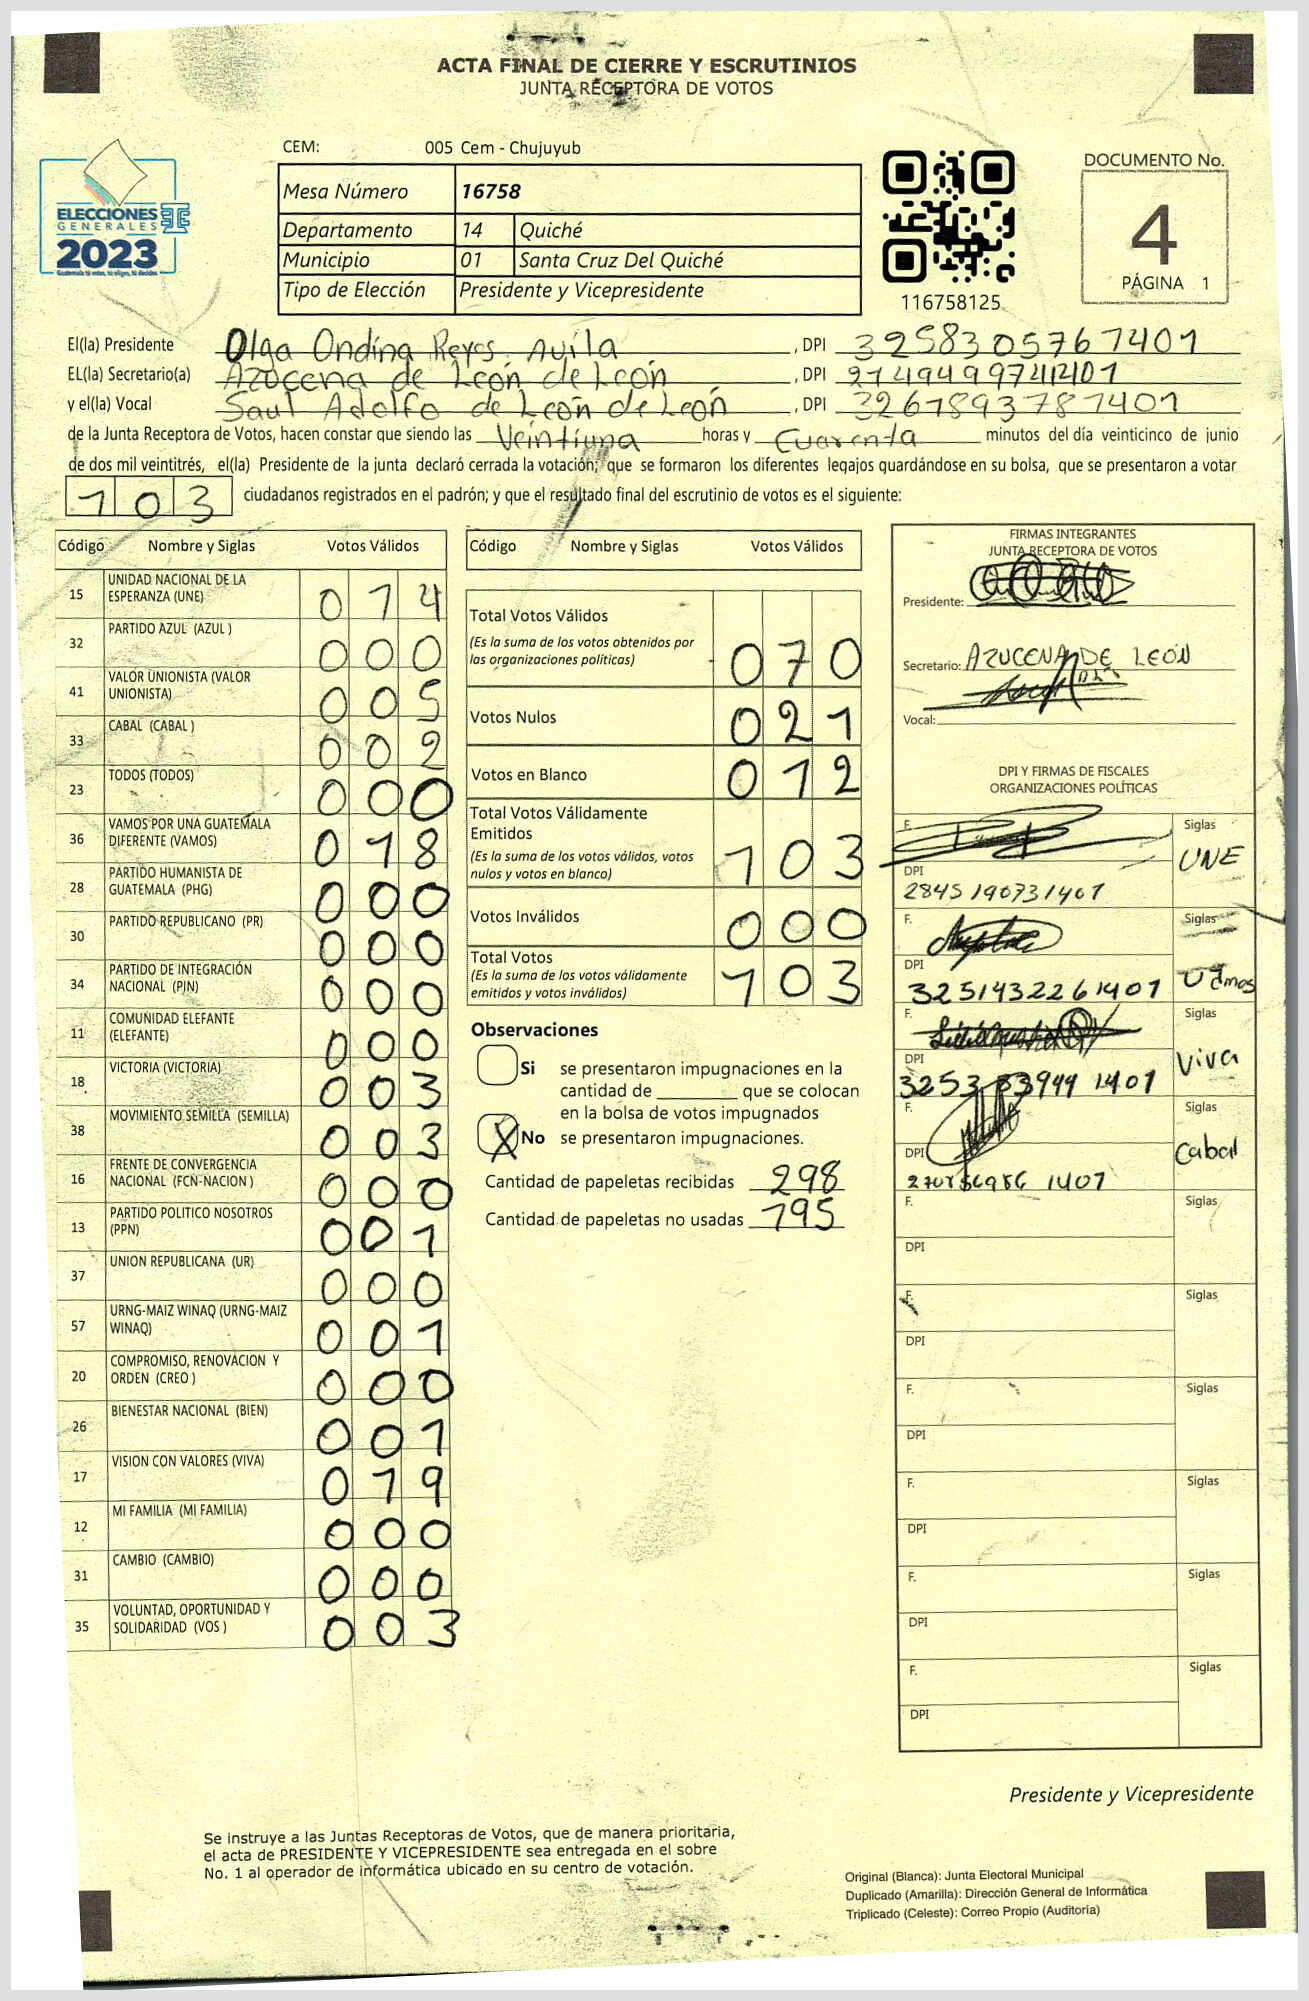 ACTA FINAL DE CIERRE Y ESCRUTINIOS
JUNTA RECEPTORA DE VOTOS
CEM: 005 Cem - Chujuyub
DOCUMENTO No.
4
PÁGINA 1
ELECCIONES
GENERALES
2023
Guatemala tú votas, tú eliges, tú decides
Mesa Número 16758
Departamento 14 Quiché
Municipio 01 Santa Cruz Del Quiché
Tipo de Elección Presidente y Vicepresidente
116758125
El(la) Presidente Olga Ondina Reyes Avila , DPI 3258305767401
EL(la) Secretario(a) Azucena de León de León , DPI
y el(la) Vocal Saul Adolfo de León de León , DPI 3267893787401
de la Junta Receptora de Votos, hacen constar que siendo las Veintiuna horas y Cuarenta minutos del día veinticinco de junio
de dos mil veintitrés, el(la) Presidente de la junta declaró cerrada la votación; que se formaron los diferentes legajos guardándose en su bolsa, que se presentaron a votar
103 ciudadanos registrados en el padrón; y que el resultado final del escrutinio de votos es el siguiente:
Código Nombre y Siglas Votos Válidos
15 UNIDAD NACIONAL DE LA ESPERANZA (UNE) 014
32 PARTIDO AZUL (AZUL ) 000
41 VALOR UNIONISTA (VALOR UNIONISTA) 005
33 CABAL (CABAL ) 002
23 TODOS (TODOS) 000
36 VAMOS POR UNA GUATEMALA DIFERENTE (VAMOS) 018
28 PARTIDO HUMANISTA DE GUATEMALA (PHG) 000
30 PARTIDO REPUBLICANO (PR) 000
34 PARTIDO DE INTEGRACIÓN NACIONAL (PIN) 000
11 COMUNIDAD ELEFANTE (ELEFANTE) 000
18 VICTORIA (VICTORIA) 003
38 MOVIMIENTO SEMILLA (SEMILLA) 003
16 FRENTE DE CONVERGENCIA NACIONAL (FCN-NACION ) 000
13 PARTIDO POLITICO NOSOTROS (PPN) 001
37 UNION REPUBLICANA (UR) 000
57 URNG-MAIZ WINAQ (URNG-MAIZ WINAQ) 001
20 COMPROMISO, RENOVACION Y ORDEN (CREO ) 000
26 BIENESTAR NACIONAL (BIEN) 001
17 VISION CON VALORES (VIVA) 019
12 MI FAMILIA (MI FAMILIA) 000
31 CAMBIO (CAMBIO) 000
35 VOLUNTAD, OPORTUNIDAD Y SOLIDARIDAD (VOS ) 003
Código Nombre y Siglas Votos Válidos
Total Votos Válidos
(Es la suma de los votos obtenidos por las organizaciones políticas) 070
Votos Nulos 021
Votos en Blanco 012
Total Votos Válidamente Emitidos
(Es la suma de los votos válidos, votos nulos y votos en blanco) 103
Votos Inválidos 000
Total Votos
(Es la suma de los votos válidamente emitidos y votos inválidos) 103
Observaciones
Si se presentaron impugnaciones en la
cantidad de ________ que se colocan
en la bolsa de votos impugnados
X No se presentaron impugnaciones.
Cantidad de papeletas recibidas 298
Cantidad de papeletas no usadas 195
FIRMAS INTEGRANTES
JUNTA RECEPTORA DE VOTOS
Presidente:
Secretario: AZUCENA DE LEÓN
Vocal:
DPI Y FIRMAS DE FISCALES
ORGANIZACIONES POLÍTICAS
F. Siglas
UNE
DPI
2845190731401
F. Siglas
Vamos
DPI
3251432261401
F. Siglas
Viva
DPI
F. Siglas
Cabal
DPI
F. Siglas
DPI
F. Siglas
DPI
F. Siglas
DPI
F. Siglas
DPI
F. Siglas
DPI
F. Siglas
DPI
Presidente y Vicepresidente
Se instruye a las Juntas Receptoras de Votos, que de manera prioritaria,
el acta de PRESIDENTE Y VICEPRESIDENTE sea entregada en el sobre
No. 1 al operador de informática ubicado en su centro de votación.
Original (Blanca): Junta Electoral Municipal
Duplicado (Amarilla): Dirección General de Informática
Triplicado (Celeste): Correo Propio (Auditoría)